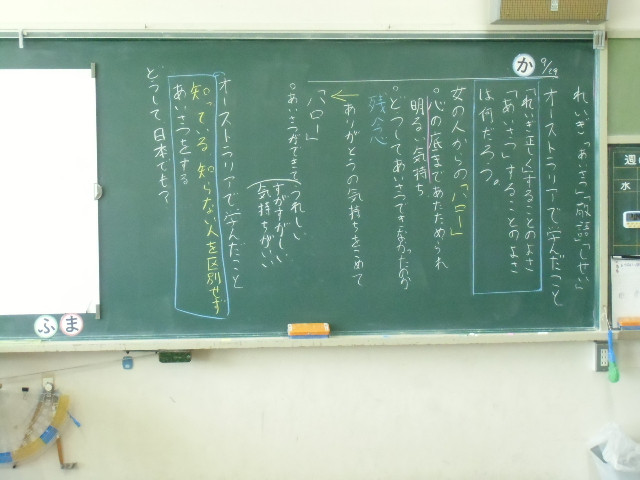 9/29
れいぎ「あいさつ」「敬語」「しせい」
オーストラリアで学んだこと
か
「れいぎ正しくすることのよさ
「あいさつ」することのよさ
は何だろう。
女の人からの「ハロー」
○心の底まであたためられ
明るい気持ち
○どうしてあいさつできなかったのか
残念
ありがとうの気持ちをこめて
「ハロー」
○あいさつができてうれしい
すがすがしい
気持ちがいい
オーストラリアで学んだこと
知っている 知らない人を区別せず
あいさつをする
どうして日本でも?
ふ
ま
週の
水